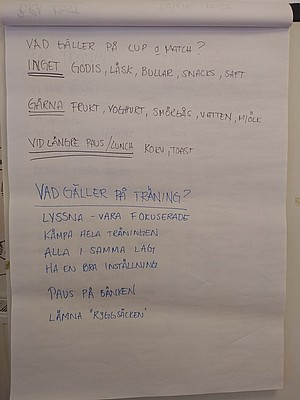 VAD GÄLLER PÅ CUP o MATCH?
INGET GODIS, LÄSK, BULLAR, SNACKS, SAFT
GÄRNA FRUKT, YOGHURT, SMÖRGÅS, VATTEN, MJÖLK
VID LÄNGRE PAUS/LUNCH KORV, TOAST
VAD GÄLLER PÅ TRÄNING?
LYSSNA - VARA FOKUSERADE
KÄMPA HELA TRÄNINGEN
ALLA I SAMMA LAG
HA EN BRA INSTÄLLNING
PAUS PÅ BÄNKEN
LÄMNA "RYGGSÄCKEN"